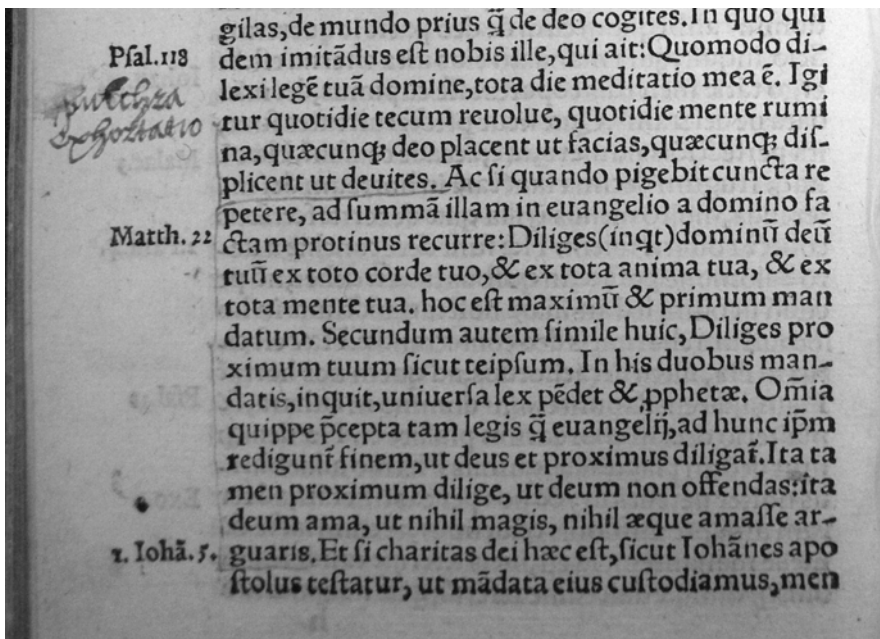 gilas,de mundo prius q̃ de deo cogites.In quo qui
Pſal.118
dem imitãdus eſt nobis ille,qui ait:Quomodo di-
lexi legẽ tuã domine,tota die meditatio mea ẽ. Igi
pulchra
exhortatio
tur quotidie tecum reuolue, quotidie mente rumi
na,quæcunqꝫ deo placent ut facias,quæcunqꝫ diſ-
plicent ut deuites. Ac ſi quando pigebit cuncta re
petere, ad ſummã illam in euangelio a domino fa
Matth. 22
ctam protinus recurre:Diliges(inqt)dominũ deũ
tuũ ex toto corde tuo,& ex tota anima tua, & ex
tota mente tua. hoc eſt maximũ & primum man
datum. Secundum autem ſimile huic,Diliges pro
ximum tuum ſicut teipſum. In his duobus man-
datis,inquit,uniuerſa lex pẽdet & ꝓphetæ. Om̃ia
quippe p̃cepta tam legis q̃ euangelij,ad hunc ip̃m
redigunt̃ finem,ut deus et proximus diligat̃.Ita ta
men proximum dilige, ut deum non offendas:ita
deum ama, ut nihil magis, nihil æque amaſſe ar-
1. Iohã. 5.
guaris.Et ſi charitas dei hæc eſt,ſicut Iohãnes apo
ſtolus teſtatur, ut mãdata eius cuſtodiamus,men